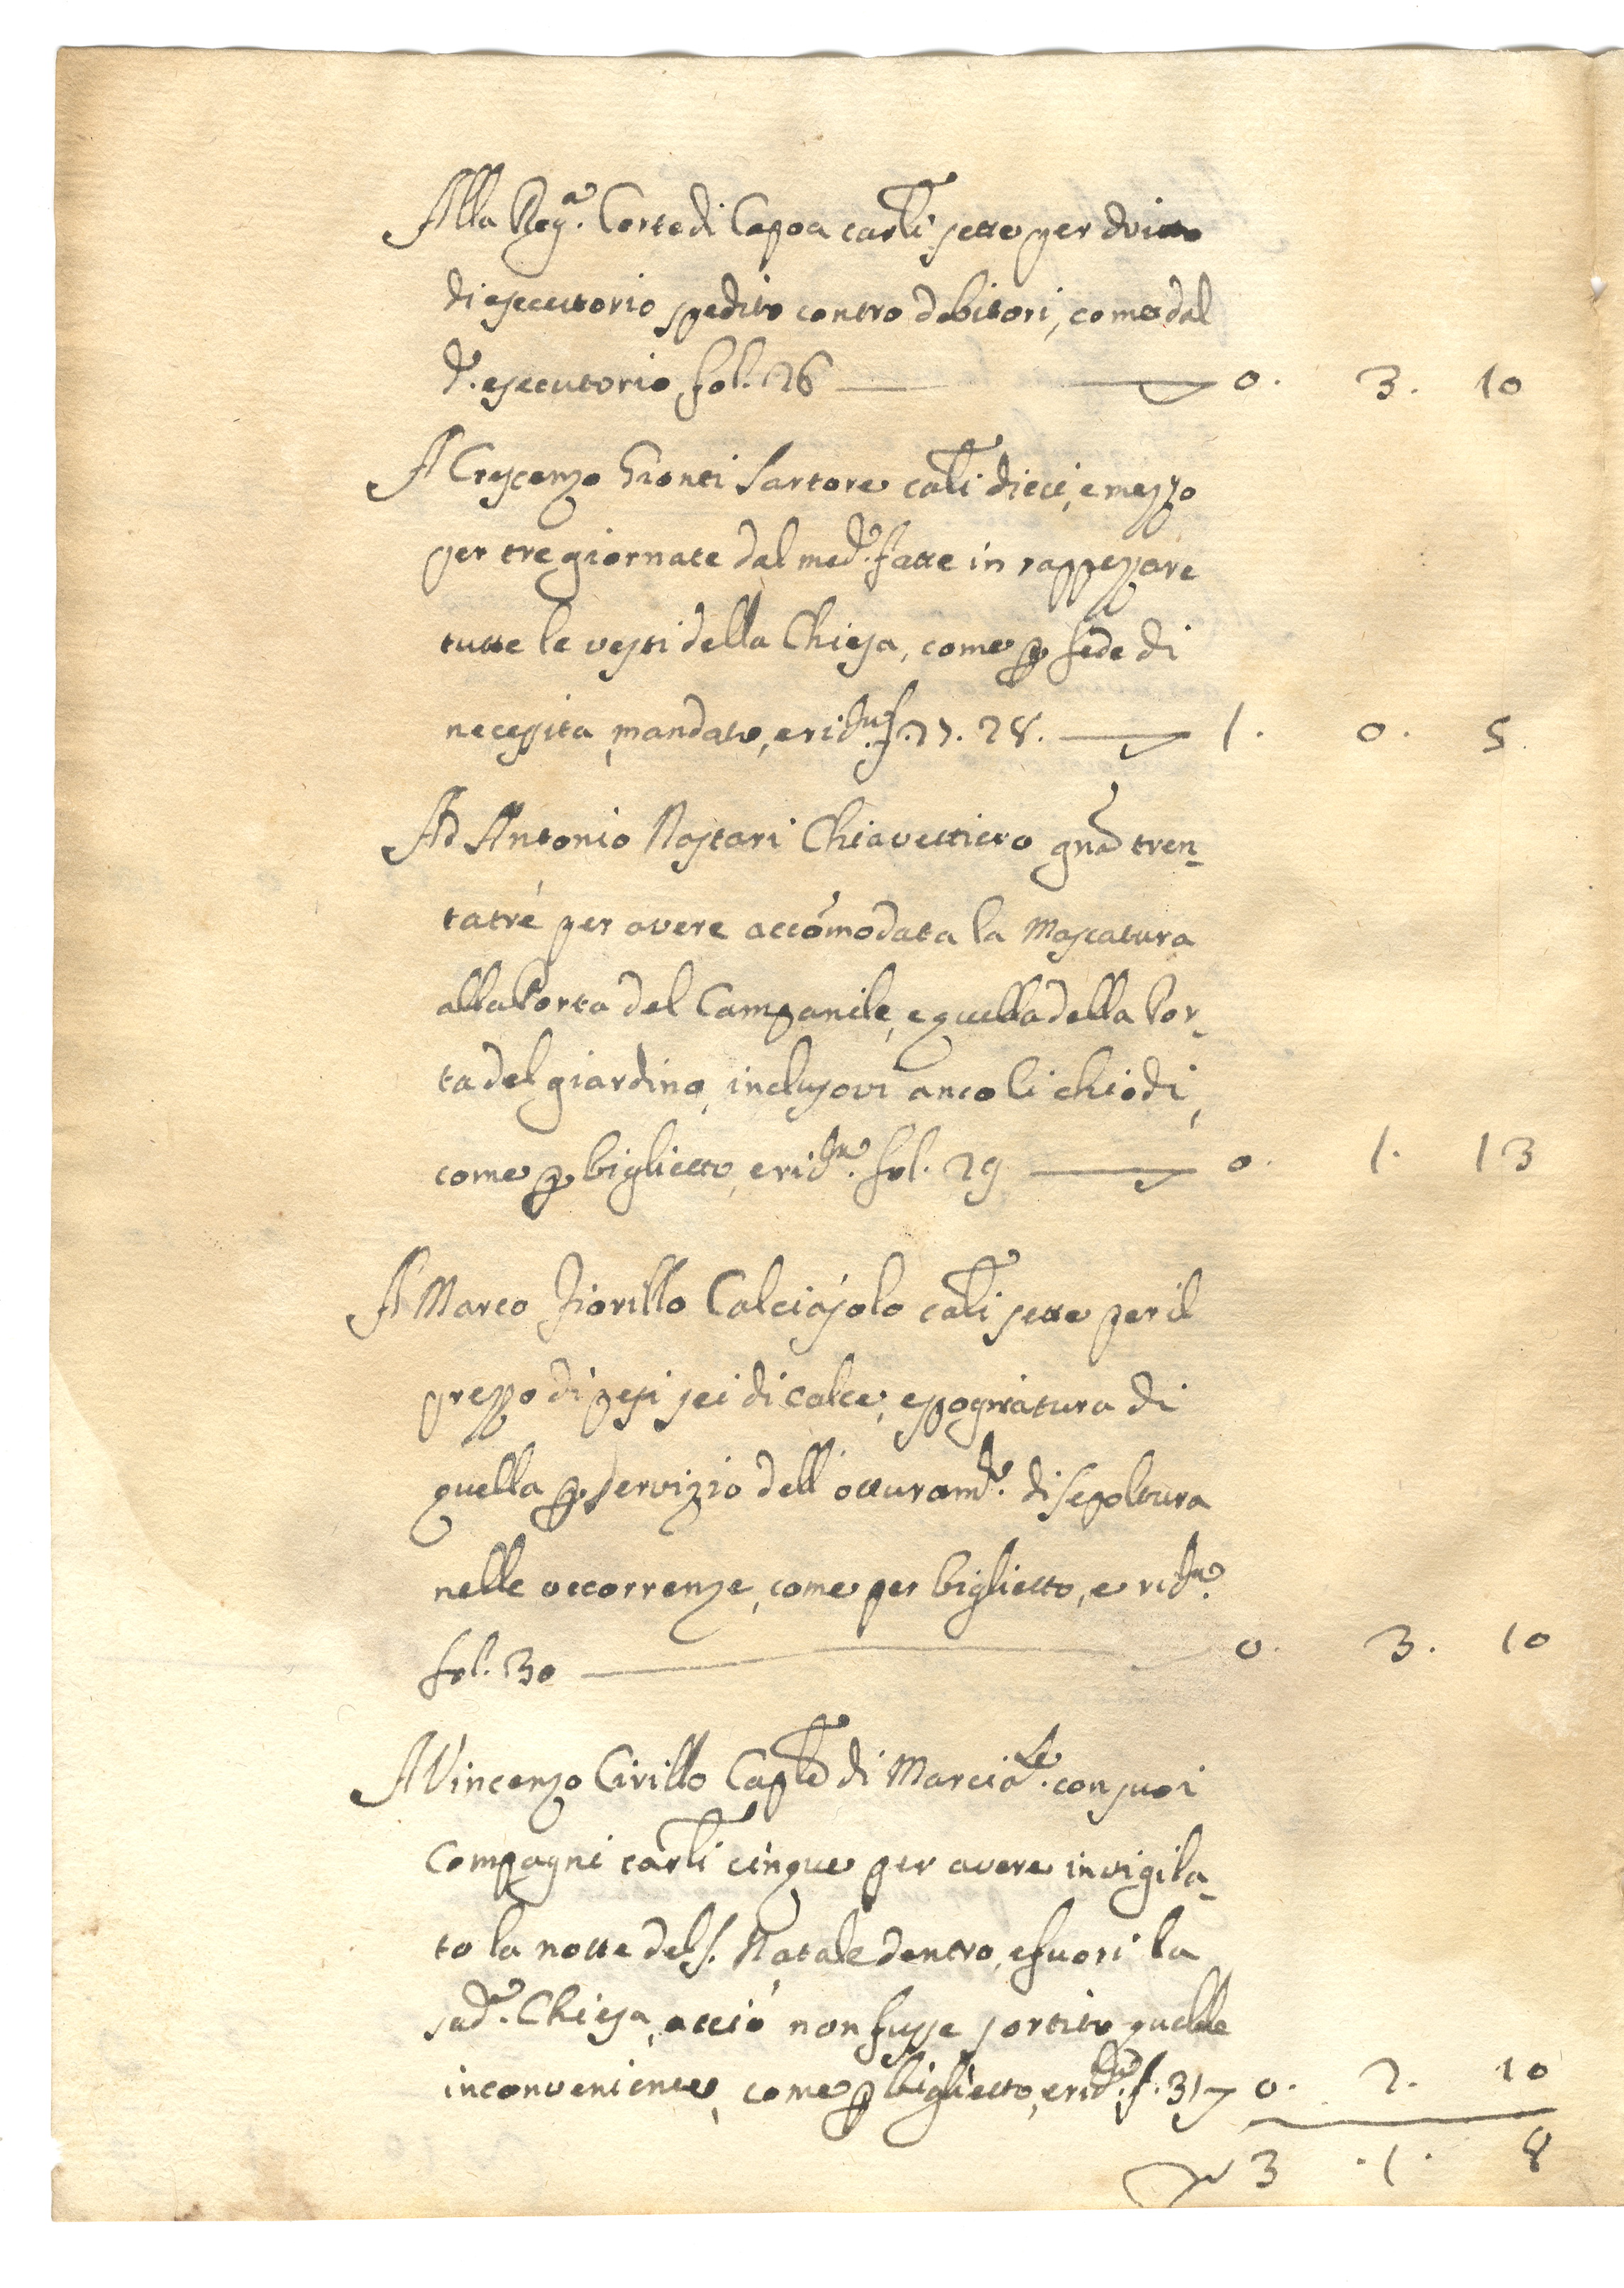 Alla Reg.ª Corte di Capoa carli sette per dritto
di esecutorio spedito contro debitori, come dal
d.º esecutorio fol. 26 — 0. 3. 10
A Crescenzo Gionti Sartore carli dieci, e mezzo
per tre giornate dal med.º fatte in rappezzare
tutte le vesti della Chiesa, come p fede di
necessità, mandato, e ric.ta f. 27. 28. — 1. 0. 5
Ad Antonio Nostari Chiavettiero gna tren-
tatré per avere accomodata la Mascatura
alla Porta del Campanile, e quella della Por-
ta del giardino, inclusovi anco li chiodi,
come p biglietto, e ric.ta fol. 29 — 0. 1. 13
A Marco Fiorillo Calciajolo carli sette per il
prezzo di pesi sei di calce, e spognatura di
quella p servizio dell' otturam.to di sepoltura
nelle occorrenze, come per biglietto, e ric.ta
fol. 30 — 0. 3. 10
A Vincenzo Cirillo Cap.le di Marcia.se con suoi
Compagni carli cinque per avere invigila-
to la notte del S. Natale dentro, e fuori la
sud.ª Chiesa, acciò non fusse sortito qualche
inconveniente, come p biglietto, e ric.ta f. 31 — 0. 2. 10
3 . 1 . 8